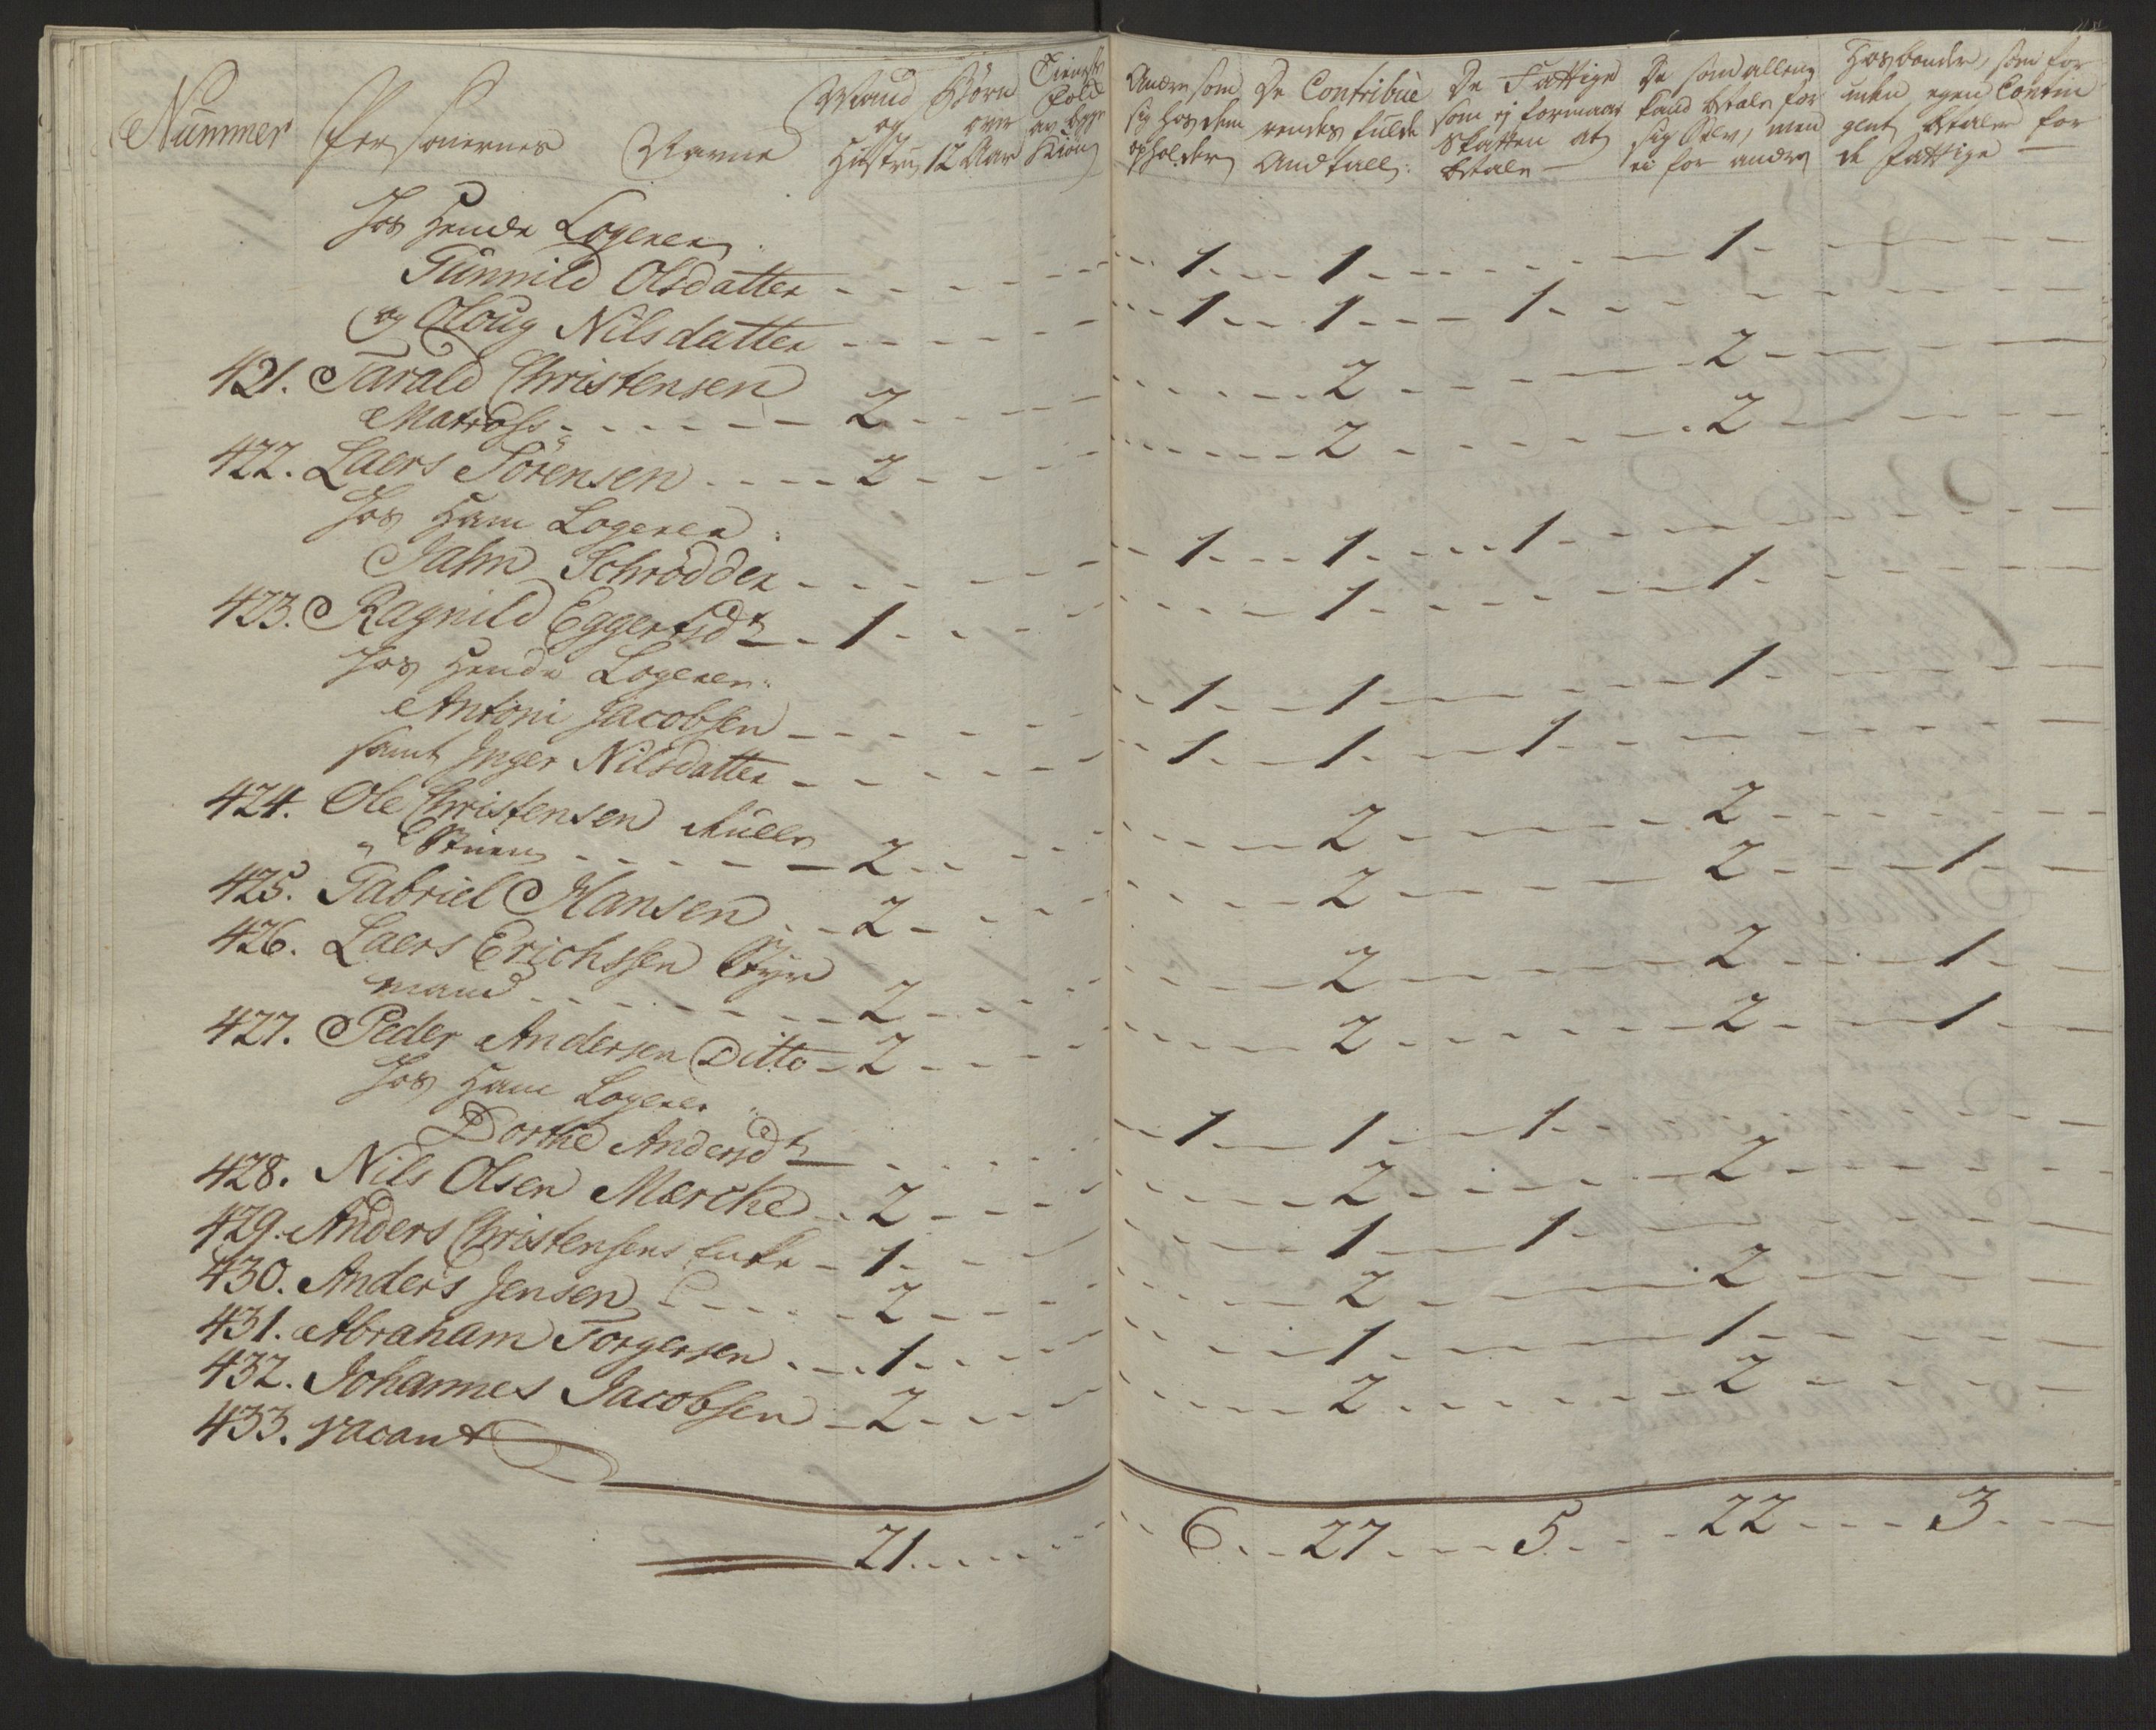 Nummer Persohnernes Navne Mand og Hustru Børn over 12 Aar Tieneste Folk af begge Kiøn Andre som sig hos dem opholder De Contribuerendes fulde Andtall: De Fattige som ej formaar Skatten at betale — De som alleene kand betale for sig Selv, men ei for andre Hosbonder, som for uden egen Contingent betaler for de fattige —
Hos Hende Logerer
Gunnild Olsdatter - - - - - 1 - - - 1 - - - - - 1 - - - -
og Oloug Nilsdatter - - - - - 1 - - - 1 - - - 1 - - - - -
421. Tarald Christensen
Matros - - - - - 2 - - - - - 2 - - - - - 2 - - - -
422. Laers Sörensen - - - - 2 - - - - - 2 - - - - - 2 - - - -
Hos Ham Logerer :
Jahn Schrödder - - - - - 1 - - - 1 - - - 1 - - - - -
423. Ragnild Eggertsdtr - 1 - - - - - 1 - - - - - 1 - - - -
Hos Hende Logerer :
Antoni Jacobsen - - - - - 1 - - 1 - - - - - 1 - - - -
samt Inger Nilsdatter - - - - - 1 - - 1 - - - 1 - - - - -
424. Ole Christensen
- - - - - 2 - - - - - 2 - - - - - 2 - - - -
425. Gabriel Hansen - - 2 - - - - - 2 - - - - - 2 - - - 1 - -
426. Laers Erichssen Styr
mand - - - - - 2 - - - - - 2 - - - - - 2 - - - 1 - -
427. Peder Andersen Ditto - 2 - - - - - 2 - - - - - 2 - - - 1 - -
Hos Ham Logerer :
Dorthe Andersdtr - - - - - 1 - - 1 - - - 1 - - - - -
428. Nils Olsen Mærche - 2 - - - - - 2 - - - - - 2 - - - -
429. Anders Christensens Enke - 1 - - - - - 1 - - - 1 - - - - -
430. Anders Jensen - - - - - 2 - - - - - 2 - - - - - 2 - - - -
431. Abraham Torgersen - - - 1 - - - - - 1 - - - - - 1 - - - -
432. Johannes Jacobsen - 2 - - - - - 2 - - - - - 2 - - - -
433. vacant
21 - - - - - 6 - - 27 - - - 5 - - - 22 - - - 3 - - -